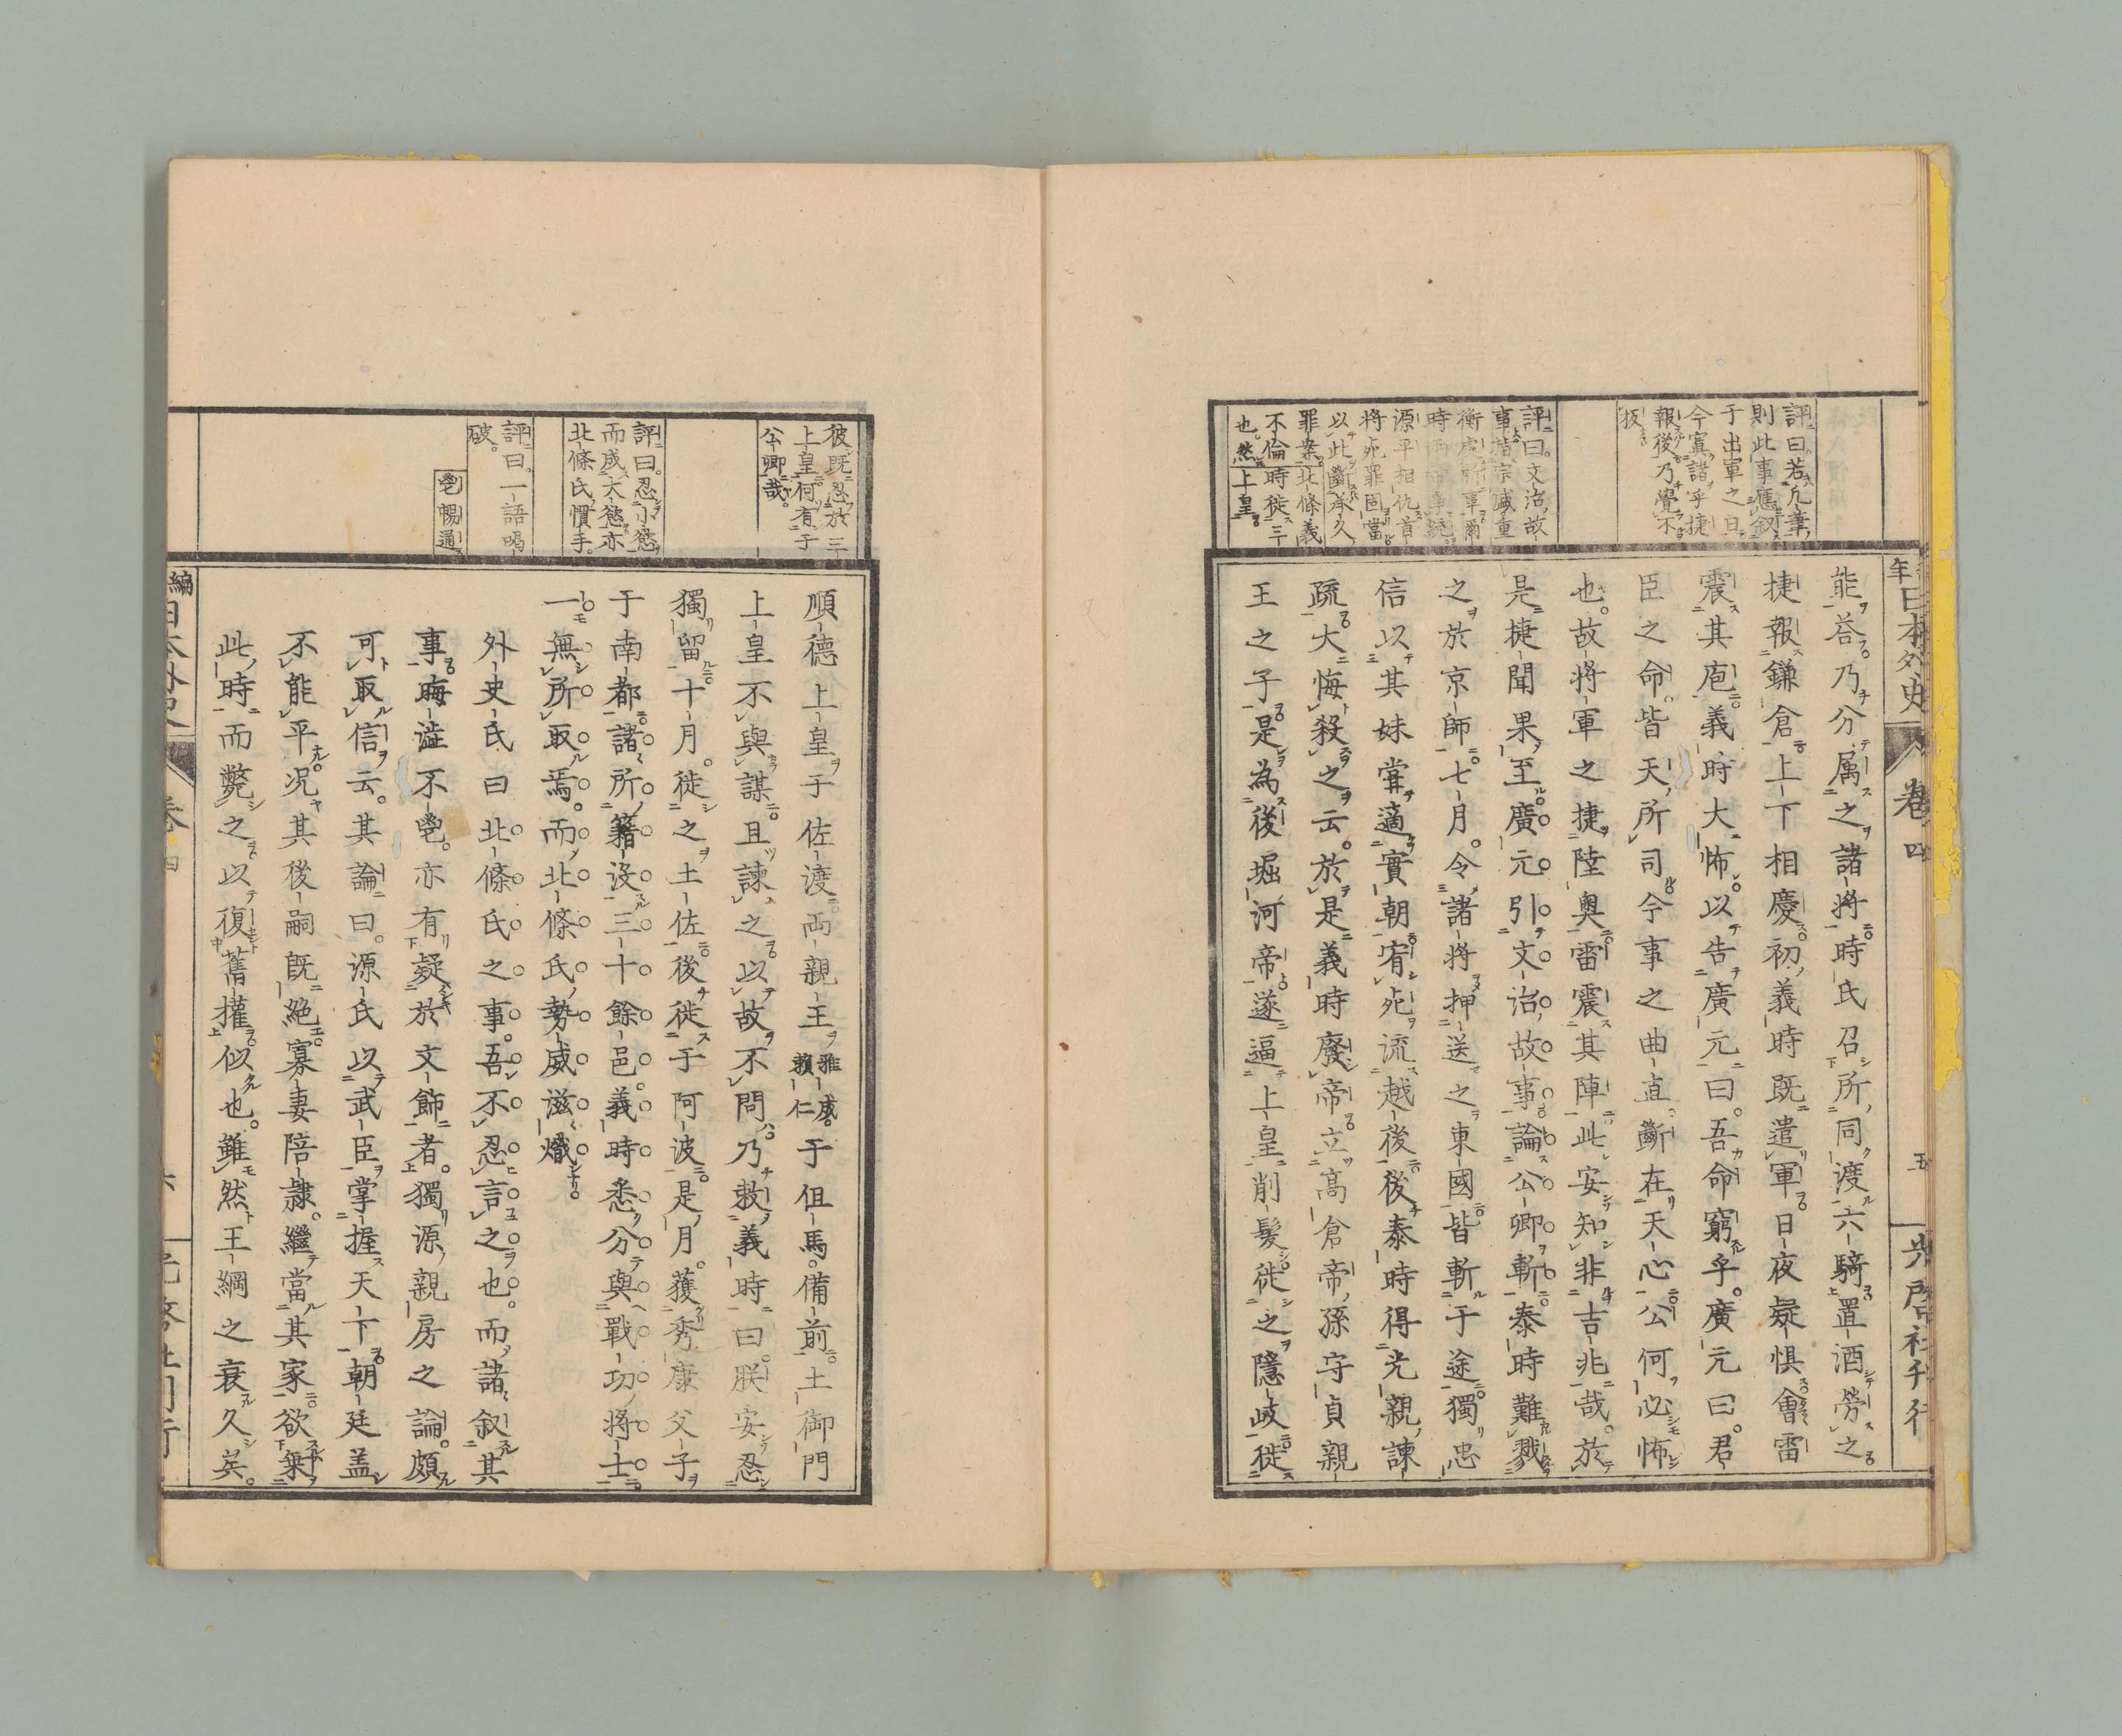 評曰。若凡筆
則此事應叙
于出軍之日。
今寘諸乎捷
報後乃覺不
扳
評曰。文治故
事。皆宗盛重
衡
源平相仇。首
將死罪固當。
以此斷承久
罪案。北條義
不倫。時徙三
也。然上皇。
日本外史
卷四
五
光啓社刊行
能荅。乃分屬之諸將。時氏召所同渡六騎。置酒勞之。
捷報鎌倉。上下相慶。初義時既遣軍。日夜疑惧。會雷
震其庖。義時大怖。以告廣元曰。吾命窮乎。廣元曰。君
臣之命。皆天所司。今事之曲直。斷在天心。公何必怖
也。故將軍之捷陸奧。雷震其陣。此安知非吉兆哉。於
是捷聞果至。廣元引文治故事。論公卿斬。泰時難戮
之於京師。七月。令諸將押送之東國。皆斬于途。獨忠
信以其妹甞適實朝。宥死流越後。後泰時得光親諫
疏。大悔殺之云。於是義時廢帝。立高倉帝孫守貞親
王之子。是為後堀河帝。遂逼上皇削髮。徙之隱岐。徙
彼既忍於三
上皇。何有于
公卿哉。
評曰。忍小慾
而成大慾。亦
北條氏慣手。
評曰。一語喝
破。
鬯暢通
順德上皇于佐渡。両親王
雅成。
賴仁
于但馬。備前。土御門
上皇不與謀。且諫之。以故不問。乃敕義時曰。朕安忍
獨留。十月。徙之土佐。後徙于阿波。是月。獲秀康父子
于南都。諸所籍没三十餘邑。義時悉分與戰功將士。
一無所取焉。而北條氏勢威滋熾。
外史氏曰。北條氏之事。吾不忍言之也。而諸叙其
事。晦澁不鬯。亦有疑於文飾者。獨源親房之論。頗
可取信云。其論曰。源氏以武臣掌握天下。朝廷盖
不能平。況其後嗣既絕。寡妻陪隷。繼當其家。欲乘
此時而斃之。以復舊權。似也。雖然王綱之衰久矣。
編
日本外史
卷四
六
光啓社刊行